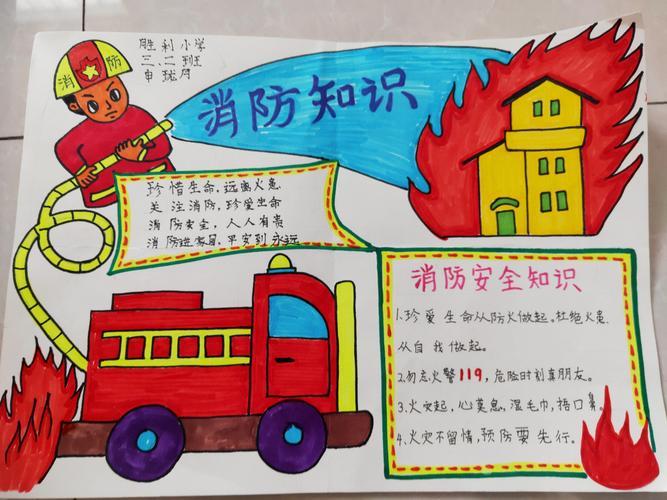 消防
胜利小学
三、二班
申珑月
消防知识
珍惜生命，远离火患
关注消防，珍爱生命
消防安全，人人有责
消防进家园，平安到永远
消防安全知识
1.珍爱生命从防火做起。杜绝火患.
从自我做起。
2.勿忘火警119，危险时刻真朋友。
3、火灾起，心莫急，湿毛巾，捂口鼻。
4、火灾不留情，预防要先行。